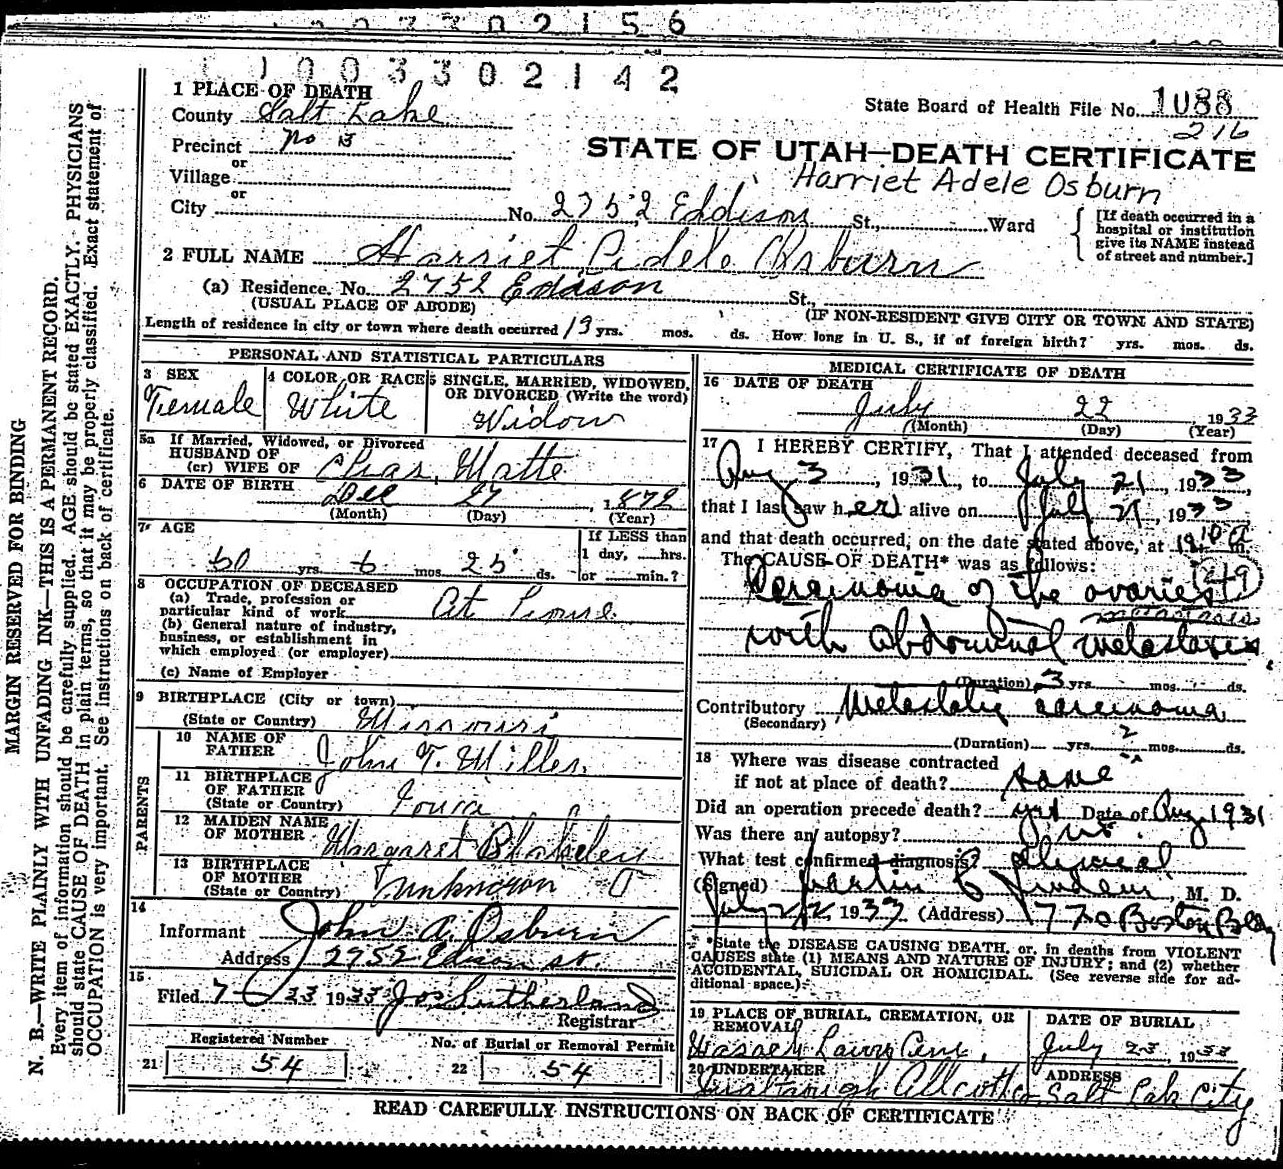 1003302156
1003302142
1 PLACE OF DEATH
County Salt Lake
State Board of Health File No. 1088
216
Precinct No 3
or
STATE OF UTAH—DEATH CERTIFICATE
Village
or
Harriet Adele Osburn
City No. 2752 Eddison St., Ward
[If death occurred in a hospital or institution give its NAME instead of street and number.]
2 FULL NAME Harriet Adele Osburn
(a) Residence. No. 2752 Eddison St.,
(USUAL PLACE OF ABODE) (IF NON-RESIDENT GIVE CITY OR TOWN AND STATE)
Length of residence in city or town where death occurred 13 yrs. mos. ds. How long in U. S., if of foreign birth? yrs. mos. ds.
PERSONAL AND STATISTICAL PARTICULARS
3 SEX 4 COLOR OR RACE 5 SINGLE, MARRIED, WIDOWED, OR DIVORCED (Write the word)
Female White Widow
5a If Married, Widowed, or Divorced
HUSBAND OF
(or) WIFE OF Chas. Matte
6 DATE OF BIRTH Dec 27, 1872
(Month) (Day) (Year)
7 AGE If LESS than
60 yrs 6 mos 25 ds. 1 day, hrs.
or min.?
8 OCCUPATION OF DECEASED
(a) Trade, profession or
particular kind of work At Home
(b) General nature of industry,
business, or establishment in
which employed (or employer)
(c) Name of Employer
9 BIRTHPLACE (City or town)
(State or Country) Missouri
PARENTS
10 NAME OF
FATHER John T. Miller
11 BIRTHPLACE
OF FATHER
(State or Country) Iowa
12 MAIDEN NAME
OF MOTHER Margaret
13 BIRTHPLACE
OF MOTHER
(State or Country) Unknown
14
Informant John A. Osburn
Address 2952 Edison st.
15
Filed 7-23 1933 Jos Sutherland
Registrar
Registered Number No. of Burial or Removal Permit
21 54 22 54
MEDICAL CERTIFICATE OF DEATH
16 DATE OF DEATH
July 22 1933
(Month) (Day) (Year)
17 I HEREBY CERTIFY, That I attended deceased from
Aug 3, 1931, to July 21, 1933,
that I last saw her alive on July 21, 1933
and that death occurred, on the date stated above, at 1210 a m.
The CAUSE OF DEATH* was as follows:
(49)
Carcinoma of the ovaries
metastasis
with abdominal metastasis.
(Duration) 3 yrs. mos. ds.
Contributory Metastatic carcinoma
(Secondary)
(Duration) yrs. 2 mos. ds.
18 Where was disease contracted
if not at place of death? same
Did an operation precede death? yes Date of Aug 1931
Was there an autopsy? no.
What test confirmed diagnosis? Clinical
(Signed) Martin C Lindem, M. D.
July 22, 1933 (Address) 720 Boston Bldg
*State the DISEASE CAUSING DEATH, or, in deaths from VIOLENT
CAUSES state (1) MEANS AND NATURE OF INJURY; and (2) whether
ACCIDENTAL, SUICIDAL OR HOMICIDAL. (See reverse side for ad-
ditional space.)
19 PLACE OF BURIAL, CREMATION, OR REMOVAL DATE OF BURIAL
Wasatch Lawn Cem. July 23, 1933
20 UNDERTAKER ADDRESS
Allcott Co. Salt Lake City
READ CAREFULLY INSTRUCTIONS ON BACK OF CERTIFICATE
MARGIN RESERVED FOR BINDING
N. B.—WRITE PLAINLY WITH UNFADING INK—THIS IS A PERMANENT RECORD.
Every item of information should be carefully supplied. AGE should be stated EXACTLY. PHYSICIANS
should state CAUSE OF DEATH in plain terms, so that it may be properly classified. Exact statement of
OCCUPATION is very important. See instructions on back of certificate.